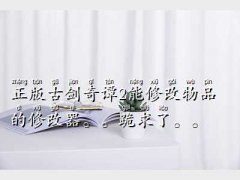 zhèng bǎn gǔ jiàn qí tán néng xiū gǎi wù pǐn
正版古剑奇谭2能修改物品
de xiū gǎi qì guì qiú le
的修改器。。跪求了。。